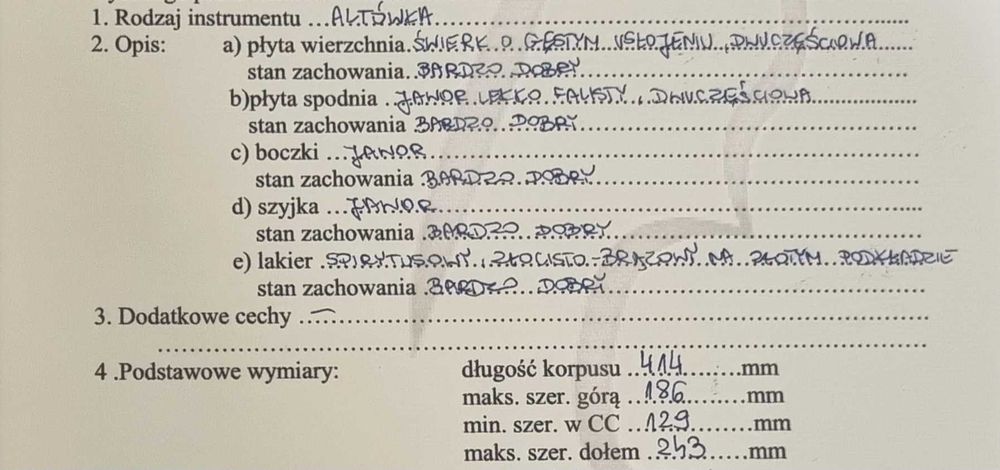 1. Rodzaj instrumentu ...ALTÓWKA...
2. Opis: a) płyta wierzchnia. ŚWIERK O GĘSTYM USŁOJENIU, DWUCZĘŚCIOWA...
stan zachowania. BARDZO DOBRY...
b)płyta spodnia . JAWOR LEKKO FALISTY, DWUCZĘŚCIOWA...
stan zachowania BARDZO DOBRY...
c) boczki ...JAWOR...
stan zachowania .BARDZO DOBRY...
d) szyjka ...JAWOR...
stan zachowania .BARDZO DOBRY...
e) lakier .SPIRYTUSOWY, ZŁOCISTO-BRĄZOWY NA ZŁOTYM PODKŁADZIE
stan zachowania .BARDZO DOBRY...
3. Dodatkowe cechy ...—...
4 .Podstawowe wymiary: długość korpusu ..414...mm
maks. szer. górą ..186...mm
min. szer. w CC ..129...mm
maks. szer. dołem .243...mm